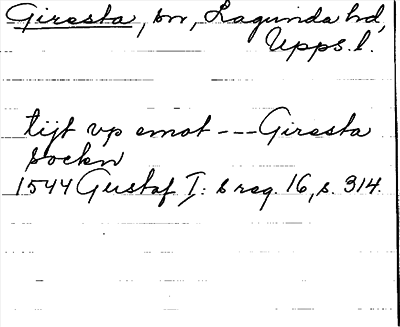 Giresta, sn, Lagunda hd,
Upps. l.
tijt vp emot --- Giresta
sockn
1544 Gustaf I: s reg. 16, s. 314.